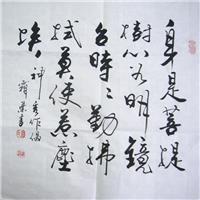 身是菩提
樹心如明鏡
台時時勤拂
拭莫使惹塵
埃 神秀作偈